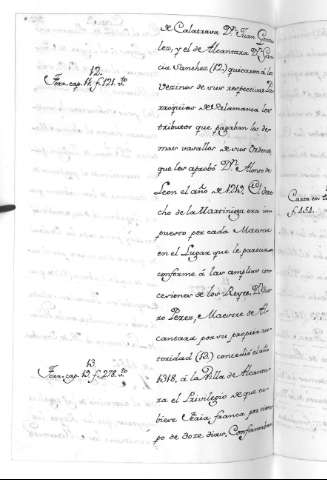 de Calatrava Dn. Juan Gonza
lez, y el de Alcantara Dn. Gar
cia Sanchez (12.) quitaron à los
vezinos de sus respectivas Pa
rroquias de Salamanca los
tributos que pagaban los de
mas vasallos de sus Ordenes,
que los aprobó Dn. Alonso de
Leon el año de 1213. El dere
cho de la Martiniega era im
puesto por cada Maestre
en el Lugar que le parecia
conforme à las amplias con
cesiones de los Reyes. Dn. Suero
Perez, Maestre de Al
cantara por su propia au
toridad (13.) concedió el año
1318, à la Villa de Alcanta
ra el Privilegio de que tu
biese Feria franca por tiem
po de doze dias. Confirmaban
12.
Torr. cap. 14. f. 121. To
13.
Torr. cap. 13. f. 278. To
f. 151.